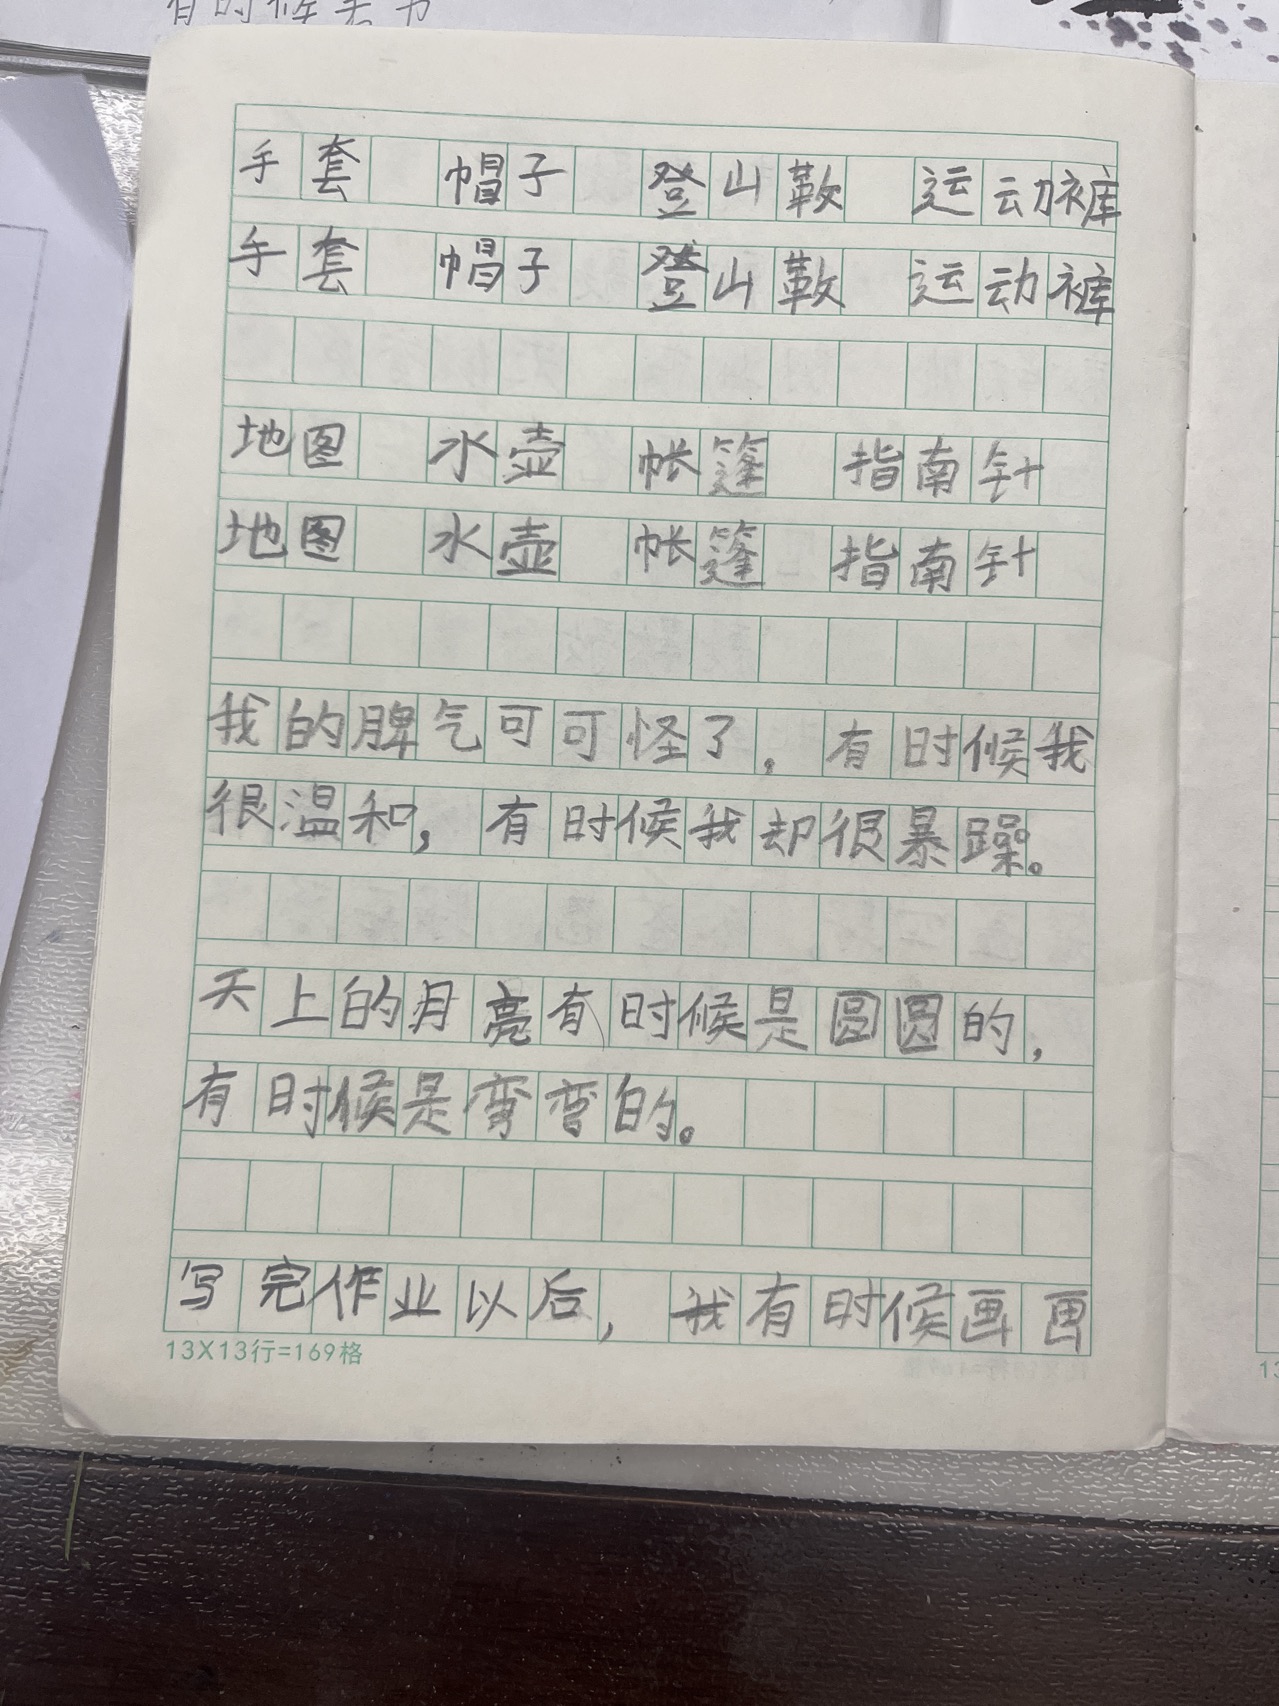 有时候去
手套 帽子 登山鞋 运动裤
手套 帽子 登山鞋 运动裤
地图 水壶 帐篷 指南针
地图 水壶 帐篷 指南针
我的脾气可可怪了,有时候我
很温和,有时候我却很暴躁。
天上的月亮有时候是圆圆的,
有时候是弯弯的。
写完作业以后,我有时候画画
13X13行=169格